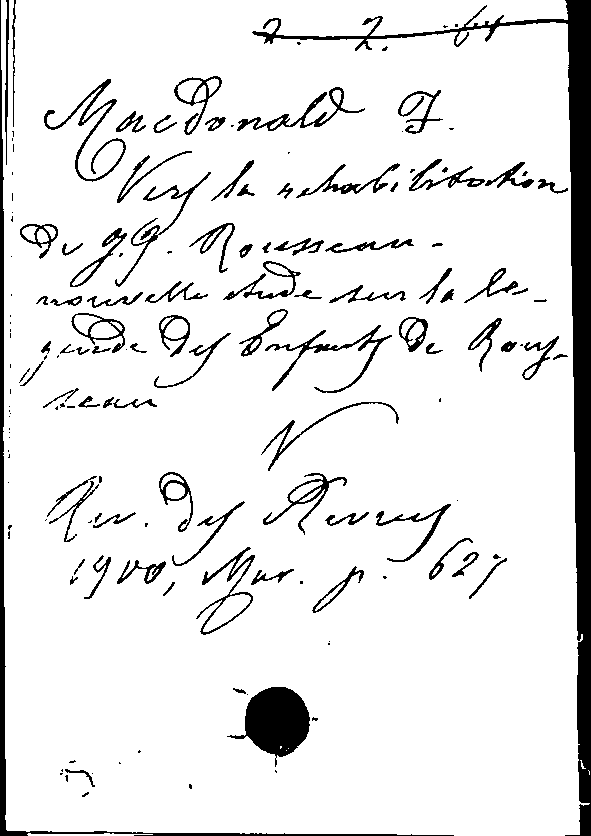 2. 2. 61
Macdonald F.
Vers la rehabilitation
de J. J. Rousseau -
nouvelle etude sur la le-
gende des Enfants de Rous-
seau
Rev. des Revues
1900, Mar. p. 627